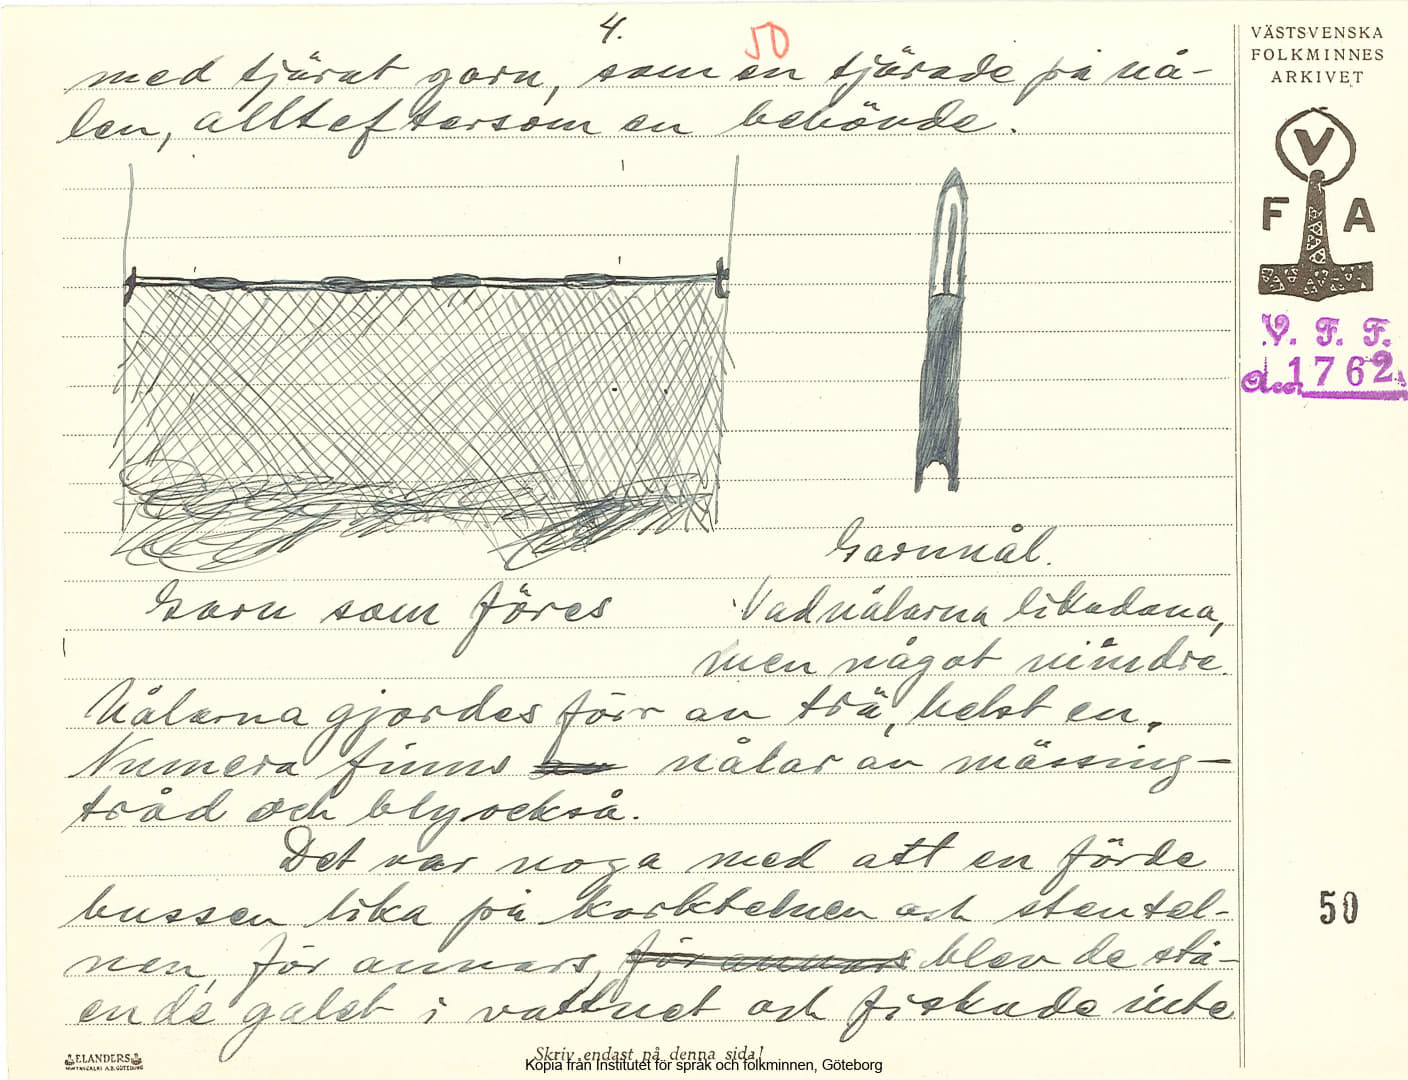 4.
50
VÄSTSVENSKA
FOLKMINNES
ARKIVET
med tjärat garn, som en tjärade på nå-
len, allteftersom en behövde.
V
F A
V. F. F.
Acc. 1762
Garnnål.
Garn som föres
Vadnålarna likadana,
men något mindre.
Nålarna gjordes förr av trä, helst en.
Numera finns av nålar av mässing-
tråd och bly också.
Det var noga med att en förde
bussen lika på korktelnen och stentel-
50
nen, för annars, för annars blev de stå-
ende galet i vattnet och fiskade inte
ELANDERS
GÖTEBORG
Skriv endast på denna sida!
Kopia från Institutet för språk och folkminnen, Göteborg